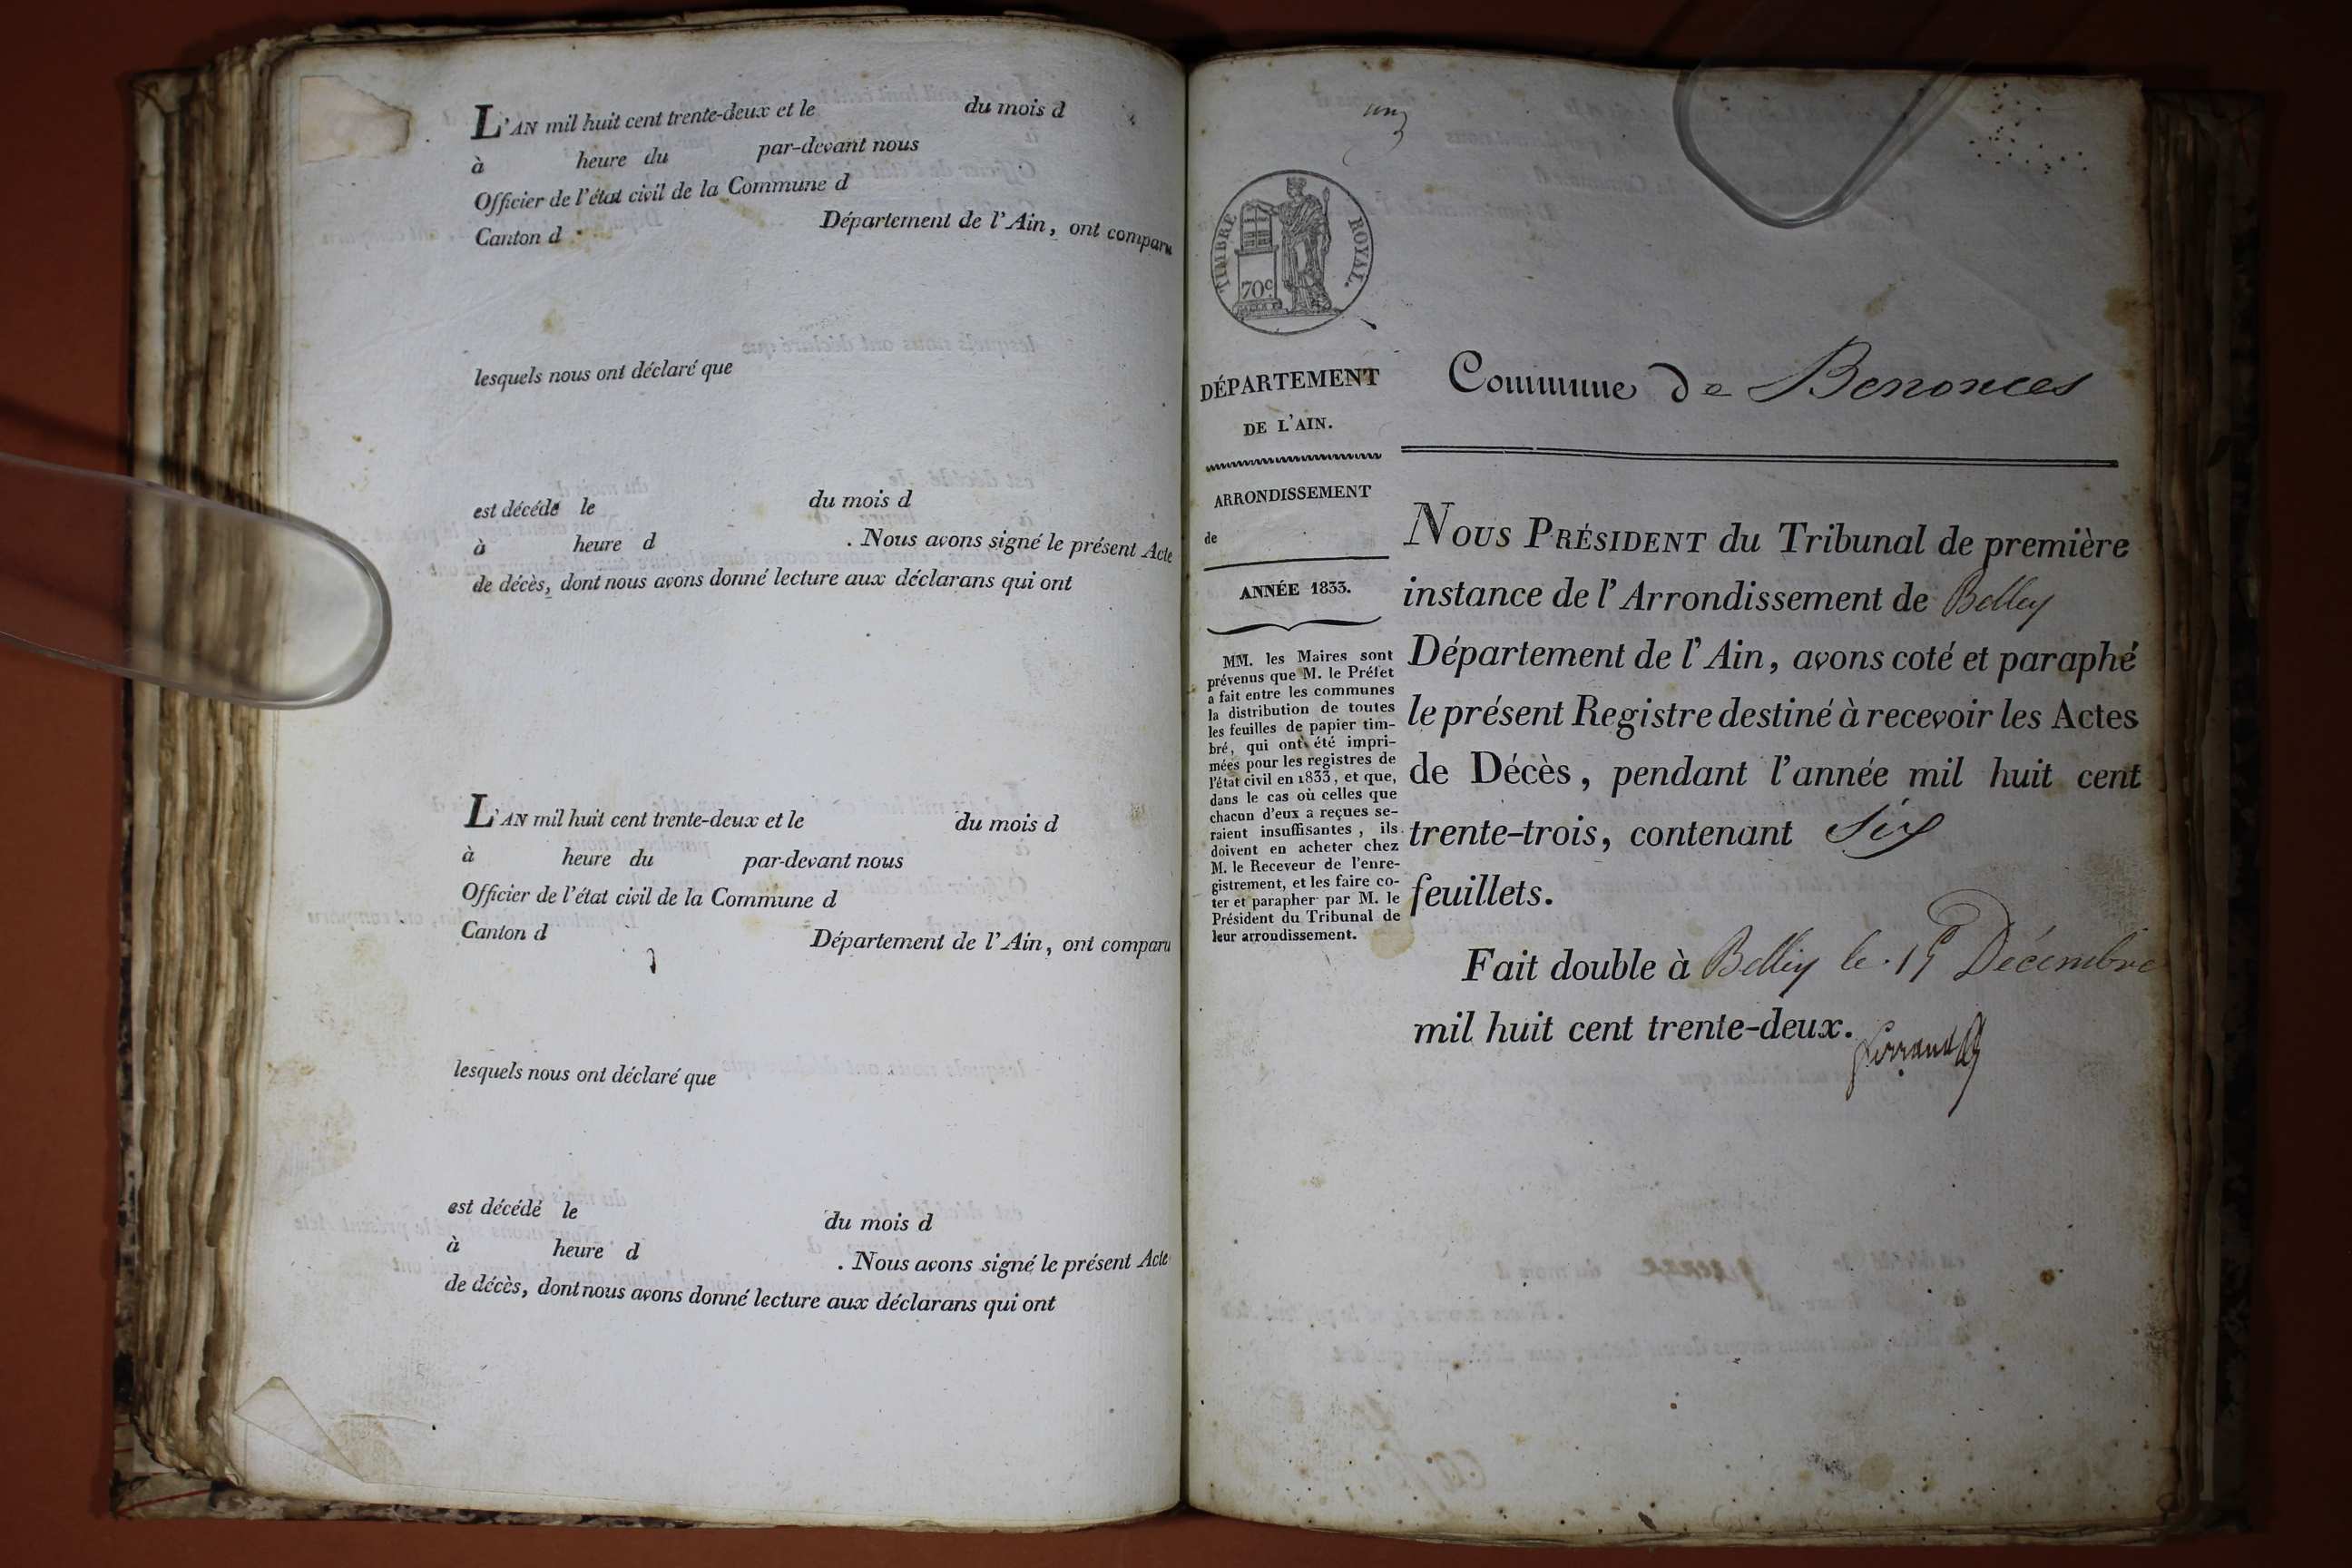 L'AN mil huit cent trente-deux et le du mois d
à heure du par-devant nous
Officier de l'état civil de la Commune d
Canton d Département de l'Ain, ont comparu
lesquels nous ont déclaré que
est décédé le du mois d
à heure d . Nous avons signé le présent Acte
de décès, dont nous avons donné lecture aux déclarans qui ont
L'AN mil huit cent trente-deux et le du mois d
à heure du par-devant nous
Officier de l'état civil de la Commune d
Canton d Département de l'Ain, ont comparu
lesquels nous ont déclaré que
est décédé le du mois d
à heure d . Nous avons signé le présent Acte
de décès, dont nous avons donné lecture aux déclarans qui ont
TIMBRE ROYAL.
70c
DÉPARTEMENT
DE L'AIN.
ARRONDISSEMENT
de
ANNÉE 1833.
MM. les Maires sont
prévenus que M. le Préfet
a fait entre les communes
la distribution de toutes
les feuilles de papier tim-
bré, qui ont été impri-
mées pour les registres de
l'état civil en 1833, et que,
dans le cas où celles que
chacun d'eux a reçues se-
raient insuffisantes, ils
doivent en acheter chez
M. le Receveur de l'enre-
gistrement, et les faire co-
ter et parapher par M. le
Président du Tribunal de
leur arrondissement.
Commune de Benonces
NOUS PRÉSIDENT du Tribunal de première
instance de l'Arrondissement de Belley
Département de l'Ain, avons coté et paraphé
le présent Registre destiné à recevoir les Actes
de Décès, pendant l'année mil huit cent
trente-trois, contenant Six
feuillets.
Fait double à Belley le Décembre
mil huit cent trente-deux.